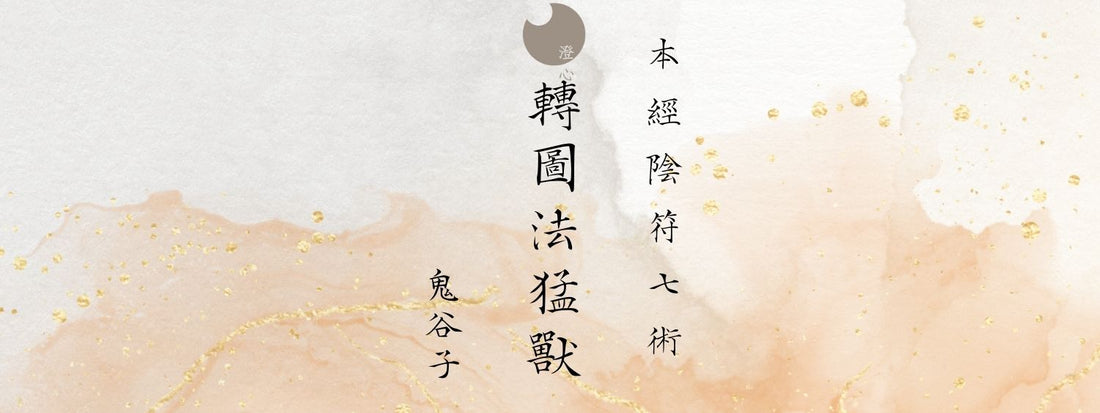 本經陰符七術
澄心
轉圖法猛獸
鬼谷子